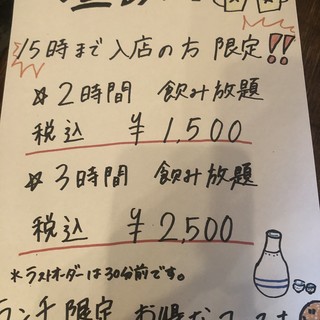 15時まで入店の方 限定!!
☆2時間 飲み放題
税込 ¥1,500
☆3時間 飲み放題
税込 ¥2,500
*ラストオーダーは30分前です。
ランチ限定